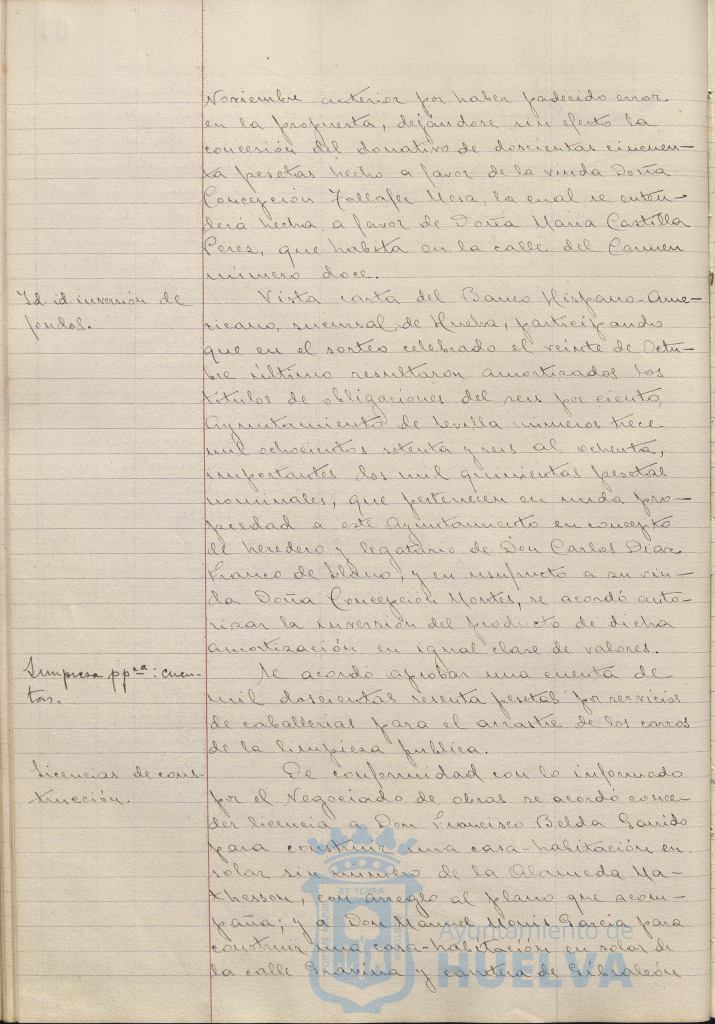 Noviembre anterior por haber padecido error
en la propuesta, dejándose sin efecto la
concesión del donativo de doscientas cincuen-
ta pesetas hecho a favor de la viuda Doña
Concepción Tallafer Mesa, la cual se enten-
derá hecha a favor de Doña María Castilla
Perez, que habita en la calle del Carmen
número doce.
Id. id. inversión de
fondos.
Vista carta del Banco Hispano-Ame-
ricano, sucursal de Huelva, participando
que en el sorteo celebrado el veinte de Octu-
bre último resultaron amortizados los
títulos de obligaciones del seis por ciento,
Ayuntamiento de Sevilla números trece
mil ochocientos setenta y seis al ochenta,
importantes dos mil quinientas pesetas
nominales, que pertenecen en nuda pro-
piedad a este Ayuntamiento en concepto
de heredero y legatario de Don Carlos Díaz
Franco de Llano, y en usufructo a su viu-
da Doña Concepción Montes, se acordó auto-
rizar la inversión del producto de dicha
amortización en igual clase de valores.
Limpieza ppca: cuen-
tas.
Se acordó aprobar una cuenta de
mil doscientas sesenta pesetas por servicios
de caballerías para el arrastre de los carros
de la limpieza publica.
Licencias de cons-
trucción.
De conformidad con lo informado
por el Negociado de obras se acordó conce-
der licencia a Don Francisco Belda Garrido
para construir una casa-habitación en
solar sin número de la Alameda Ma-
thesson, con arreglo al plano que acom-
paña; y a Don Manuel García para
construir una casa-habitación en solar de
la calle Gravina y carretera de Gibraleón
Ayuntamiento de
HUELVA